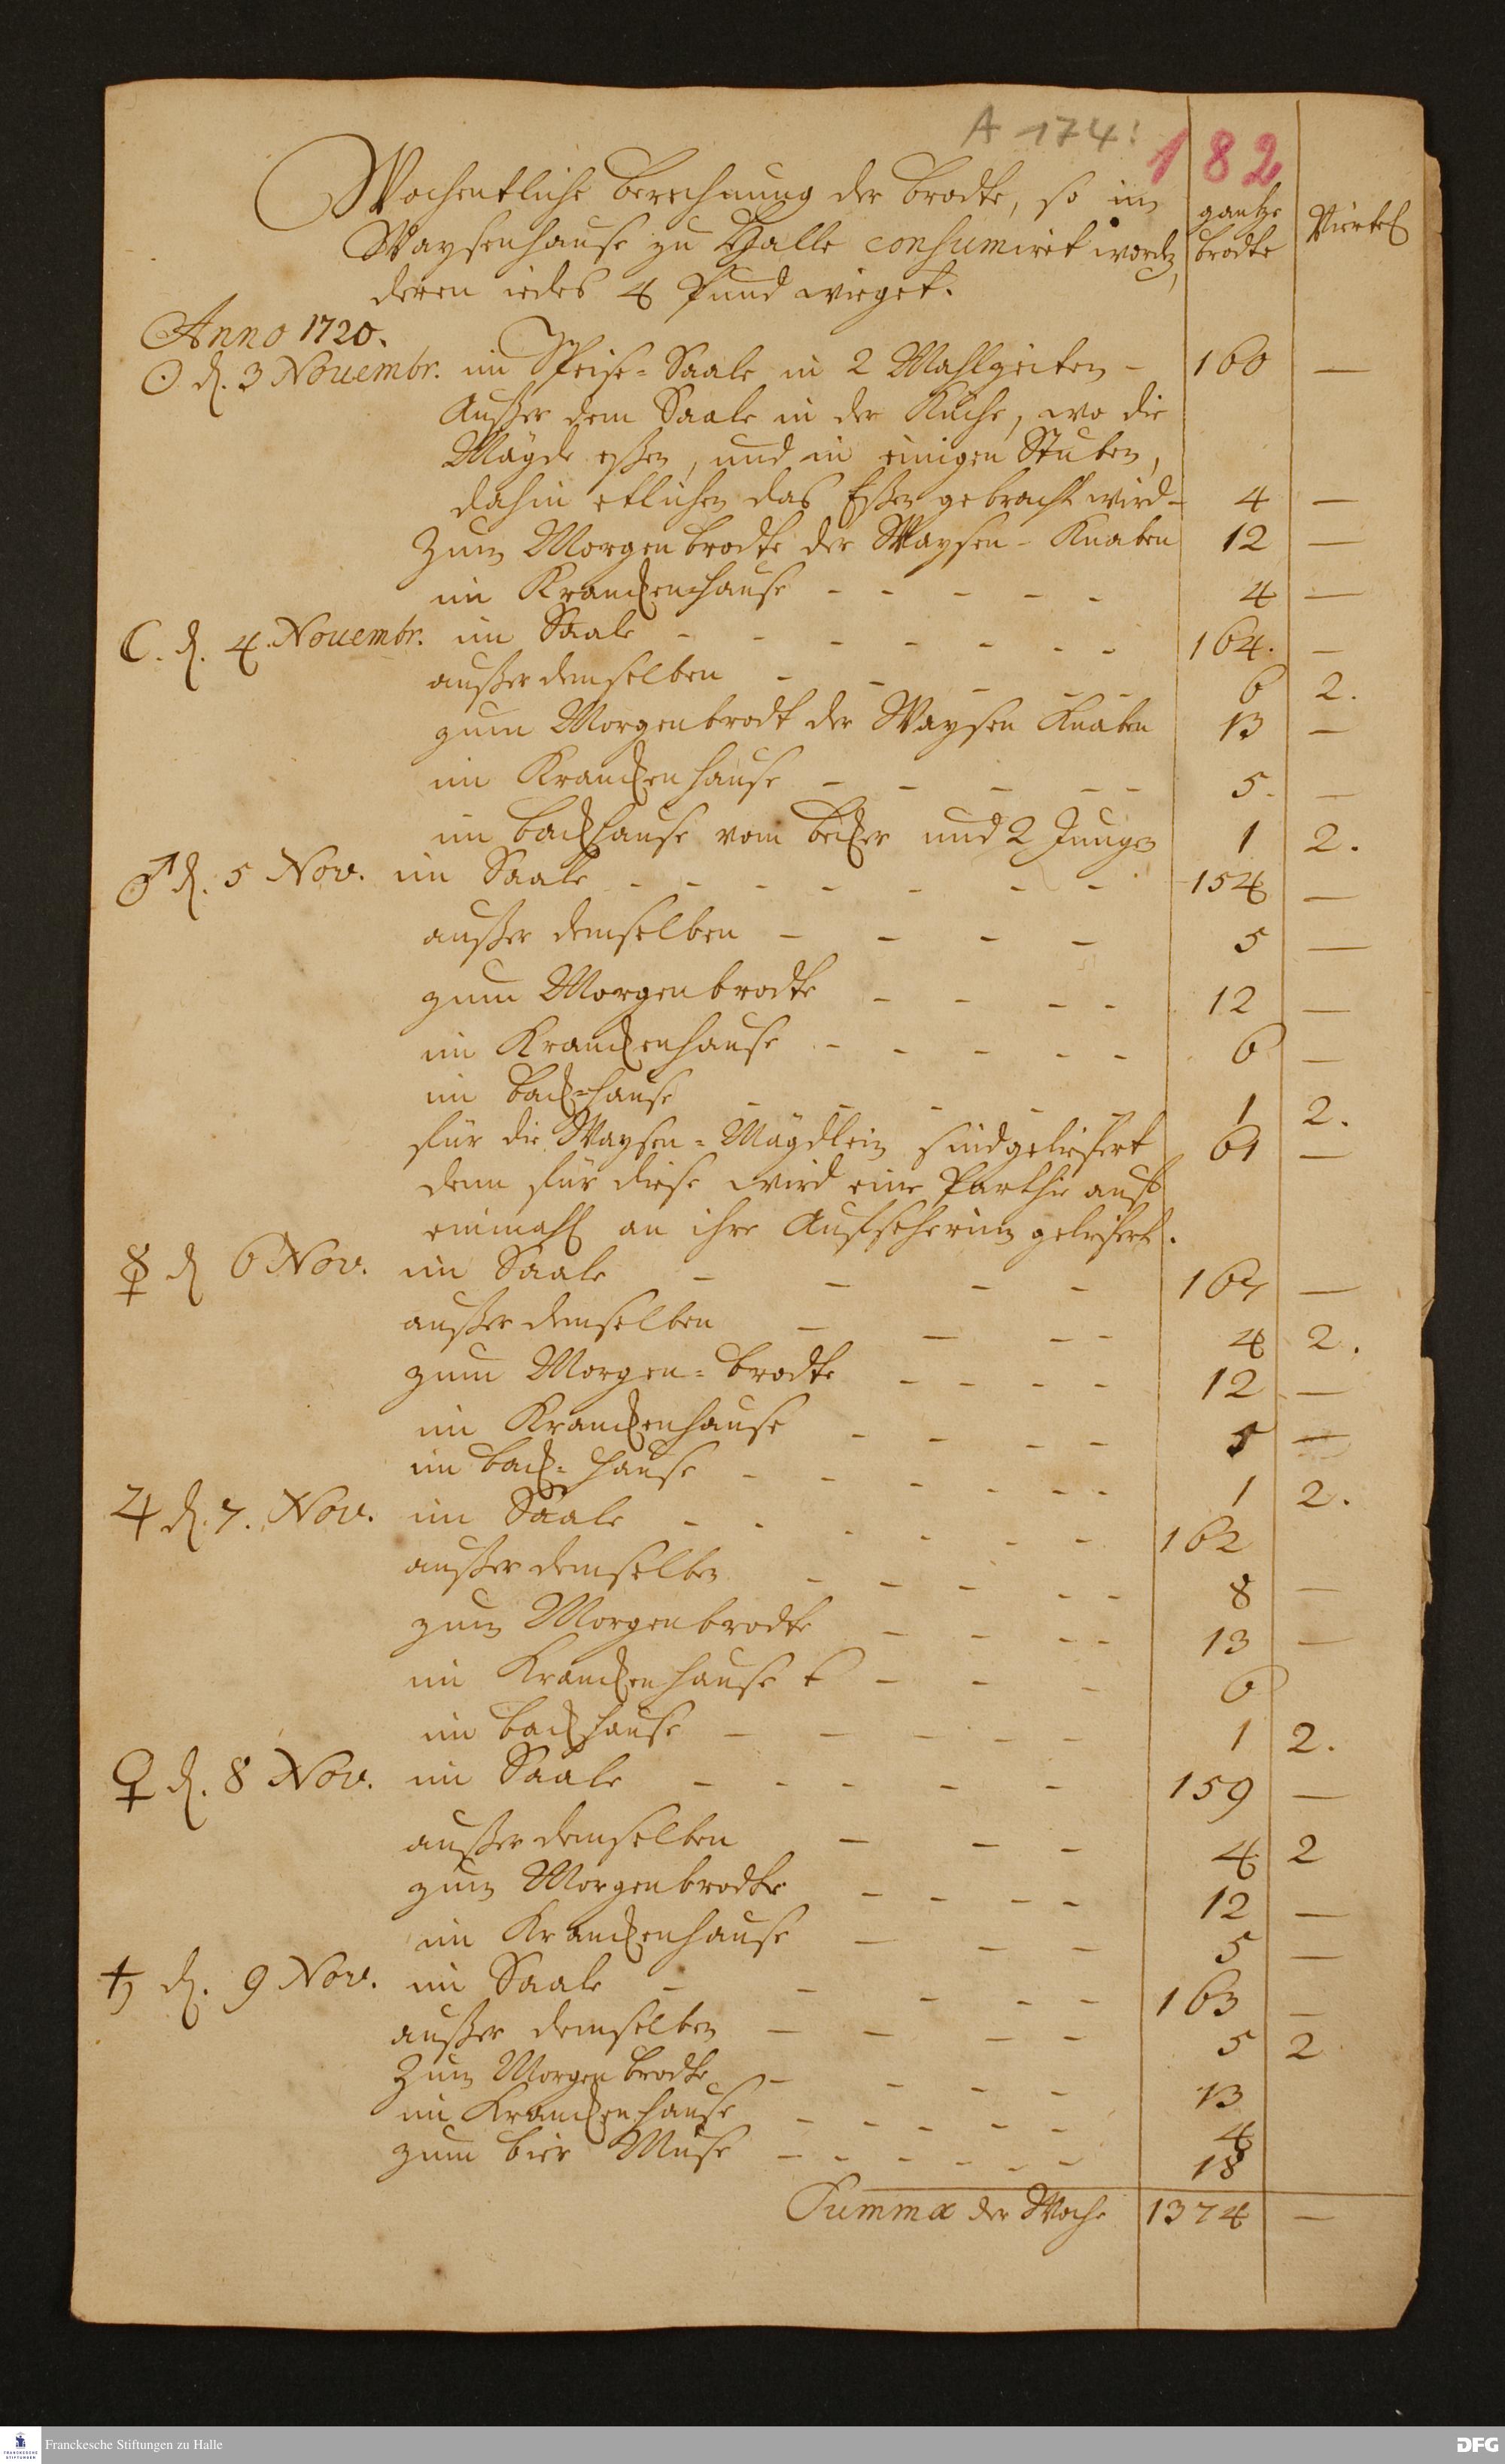 A 174:
182
Wochentliche berechnung der brodte, so im
Waysenhause zu Halle consumiret worden,
deren iedes 4 Pfund wieget.
gantze brodte
Viertel
Anno 1720.
☉ d. 3 Novembr. im Speise-Saale in 2 Mahlzeiten - 160 —
Außer dem Saale in der Küche, wo die
Mägde eßen, und in einigen Stuben,
dahin etlichen das Eßen gebracht wird - 4 —
Zum Morgenbrodte der Waysen-Knaben 12 —
im Kranckenhause - - - - - 4 —
☾. d. 4. Novembr. im Saale - - - - - - - 164. —
außer demselben - - - - - 6 2.
zum Morgenbrodt der Waysen Knaben 13 —
im Kranckenhause - - - - - 5. —
im backhause vom becker und 2 Jungen 1 2.
♂ d. 5 Nov. im Saale - - - - - - - 154 —
außer demselben - - - - 5 —
zum Morgenbrodte - - - - 12 —
im Kranckenhause - - - - - 6 —
im back-hause - - - - - 1 2.
für die Waysen-Mägdlein sind geliefert 61 —
denn für diese wird eine Parthie auf
einmahl an ihre Aufseherin geliefert.
☿ d 6 Nov. im Saale - - - - 167 —
außer demselben - - - - 4 2.
zum Morgen-brodte - - - - 12 —
im Kranckenhause - - - - 5 —
im back-hause - - - - - - 1 2.
♃ d. 7. Nov. im Saale - - - - - - 162
außer demselben - - - - - 8 —
zum Morgenbrodte - - - - 13 —
im Kranckenhause - - - 6
im backhause - - - - - 1 2.
♀ d. 8 Nov. im Saale - - - - - 159 —
außer demselben - - - 4 2
zum Morgenbrodte - - - - 12 —
im Kranckenhause - - - 5 —
♄ d. 9 Nov. im Saale - - - - - 163 —
außer demselben - - - - 5 2
Zum Morgenbrodte - - - - 13
im Kranckenhause - - - - - 4
zum bier Muse - - - - - - 18
Summa der Woche 1374 —
FRANCKESCHE STIFTUNGEN
Franckesche Stiftungen zu Halle
DFG